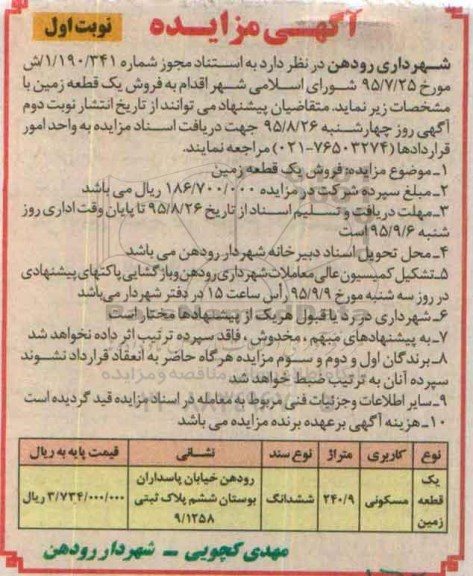 آگهـی مزایـده
نوبت اول
شـهرداری رودهن در نظر دارد به استناد مجوز شماره ۱/۱۹۰/۳۴۱/ش
مورخ ۹۵/۷/۲۵ شورای اسلامی شهر اقدام به فروش یک قطعه زمین با
مشخصات زیر نماید. متقاضیان پیشنهاد می توانند از تاریخ انتشار نوبت دوم
آگهی روز چهارشنبه ۹۵/۸/۲۶ جهت دریافت اسناد مزایده به واحد امور
قراردادها (۷۶۵۰۳۲۷۴-۰۲۱) مراجعه نمایند.
۱ـ موضوع مزایده: فروش یک قطعه زمین
۲ـ مبلغ سپرده شرکت در مزایده ۱۸۶/۷۰۰/۰۰۰ ریال می باشد
۳ـ مهلت دریافت و تسلیم اسناد از تاریخ ۹۵/۸/۲۶ تا پایان وقت اداری روز
شنبه ۹۵/۹/۶ است
۴ـ محل تحویل اسناد دبیرخانه شهردار رودهن می باشد
۵ـ تشکیل کمیسیون عالی معاملات شهرداری رودهن و بازگشایی پاکتهای پیشنهادی
در روز سه شنبه مورخ ۹۵/۹/۹ رأس ساعت ۱۵ در دفتر شهردار می‌باشد
۶ـ شهرداری در رد یا قبول هر یک از پیشنهادها مختار است
۷ـ به پیشنهادهای مبهم ، مخدوش ، فاقد سپرده ترتیب اثر داده نخواهد شد
۸ـ برندگان اول و دوم و سوم مزایده هرگاه حاضر به انعقاد قرارداد نشوند
سپرده آنان به ترتیب ضبط خواهد شد
۹ـ سایر اطلاعات وجزئیات فنی مربوط به معامله در اسناد مزایده قید گردیده است
۱۰ـ هزینه آگهی بر عهده برنده مزایده می باشد
نوع کاربری متراژ نوع سند نشـانی قیمت پایه به ریال
یک قطعه زمین مسکونی ۲۴۰/۹ ششدانگ رودهن خیابان پاسداران بوستان ششم پلاک ثبتی ۹/۱۲۵۸ ۳/۷۳۴/۰۰۰/۰۰۰ ریال
مهدی کچویی ــ شهردار رودهن